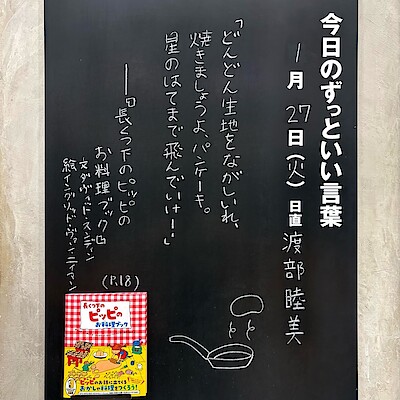 今日のずっといい言葉
1月27日(火) 日直 渡部睦美
「どんどん生地をながしいれ、
焼きましょうよ、パンケーキ。
星のはてまで飛んでいけー!」
――『長くつ下のピッピの
お料理ブック』
文 ダヴィッド・スンディン
絵 イングリッド・ヴァン・ニイマン
(P.18)
長くつ下の
ピッピの
お料理ブック
ピッピのお話に出てくる
おかしや料理をつくろう!